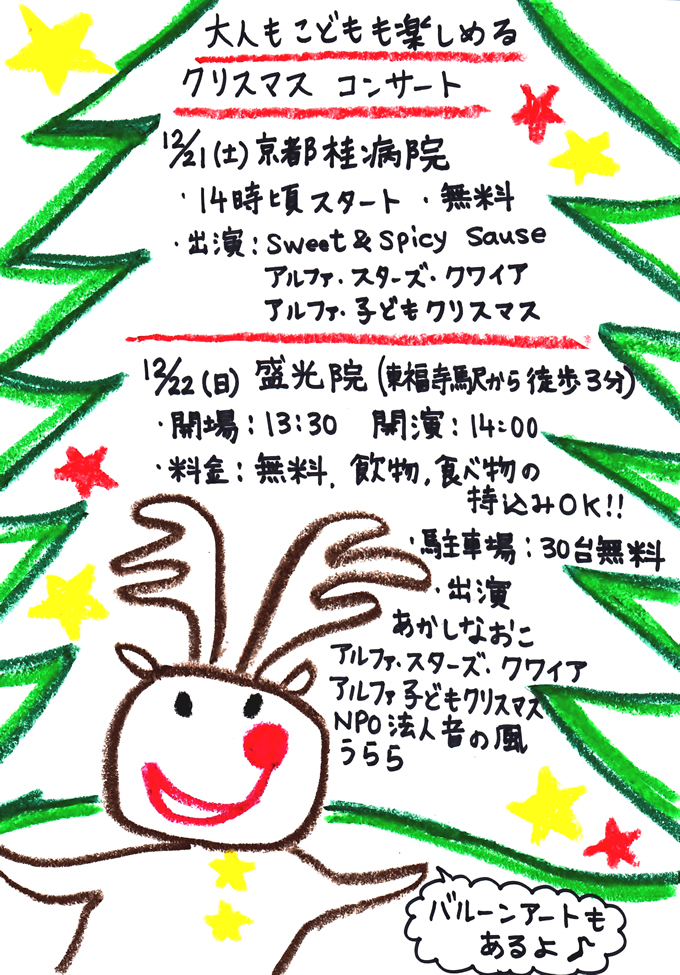 大人もこどもも楽しめる
クリスマス コンサート
12/21(土)京都桂病院
・14時頃スタート ・無料
・出演:Sweet & Spicy Sause
アルファ・スターズ・クワイア
アルファ・子どもクリスマス
12/22(日) 盛光院(東福寺駅から徒歩3分)
・開場:13:30 開演:14:00
・料金:無料, 飲物, 食べ物の
持込みOK!!
・駐車場:30台無料
・出演
あかしなおこ
アルファ・スターズ・クワイア
アルファ子どもクリスマス
NPO法人音の風
うらら
バルーンアートも
あるよ♪